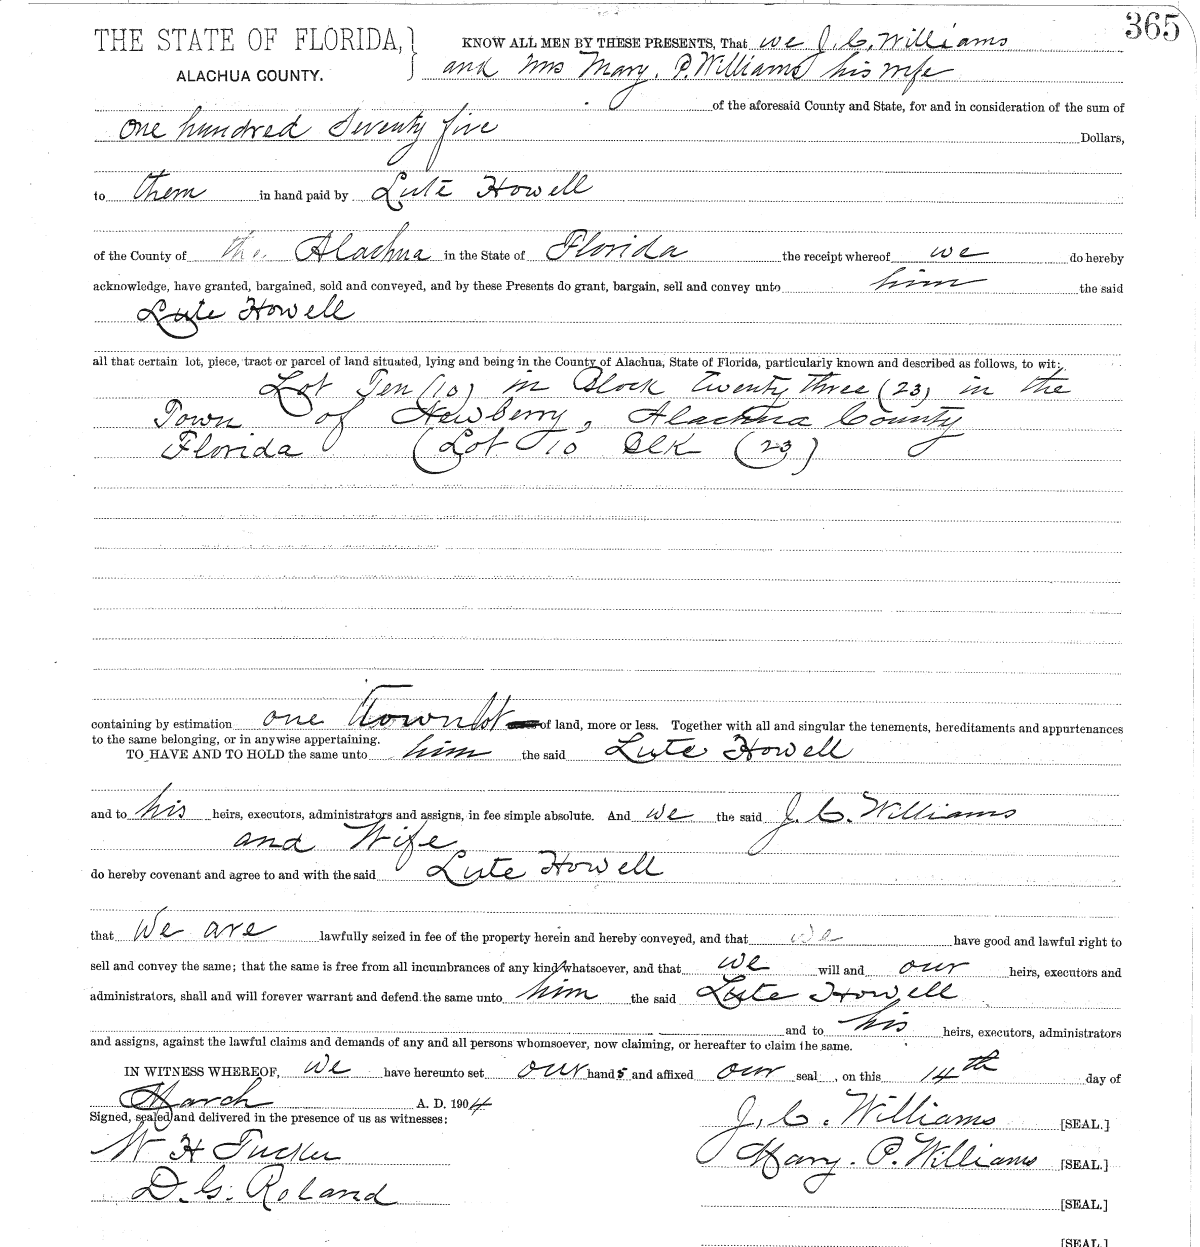 365
THE STATE OF FLORIDA,
ALACHUA COUNTY.
KNOW ALL MEN BY THESE PRESENTS, That we J. C. Williams
and Mrs Mary. P. Williams his wife
of the aforesaid County and State, for and in consideration of the sum of
One hundred Seventy five Dollars,
to them in hand paid by Lute Howell
of the County of the Alachua in the State of Florida the receipt whereof we do hereby
acknowledge, have granted, bargained, sold and conveyed, and by these Presents do grant, bargain, sell and convey unto him the said
Lute Howell
all that certain lot, piece, tract or parcel of land situated, lying and being in the County of Alachua, State of Florida, particularly known and described as follows, to wit:
Lot Ten (10) in Block twenty three (23) in the
Town of Newberry, Alachua County
Florida (Lot 10 Blk (23)
containing by estimation one Town lot of land, more or less. Together with all and singular the tenements, hereditaments and appurtenances
to the same belonging, or in anywise appertaining.
TO HAVE AND TO HOLD the same unto him the said Lute Howell
and to his heirs, executors, administrators and assigns, in fee simple absolute. And we the said J. C. Williams
and Wife
do hereby covenant and agree to and with the said Lute Howell
that We are lawfully seized in fee of the property herein and hereby conveyed, and that we have good and lawful right to
sell and convey the same; that the same is free from all incumbrances of any kind whatsoever, and that we will and our heirs, executors and
administrators, shall and will forever warrant and defend the same unto him the said Lute Howell
and to his heirs, executors, administrators
and assigns, against the lawful claims and demands of any and all persons whomsoever, now claiming, or hereafter to claim the same.
IN WITNESS WHEREOF, we have hereunto set our hands and affixed our seal , on this 14th day of
March A. D. 1904
Signed, sealed and delivered in the presence of us as witnesses:
J. C. Williams [SEAL.]
W H Tucker
Mary. P. Williams [SEAL.]
D. G. Roland
[SEAL.]
[SEAL.]